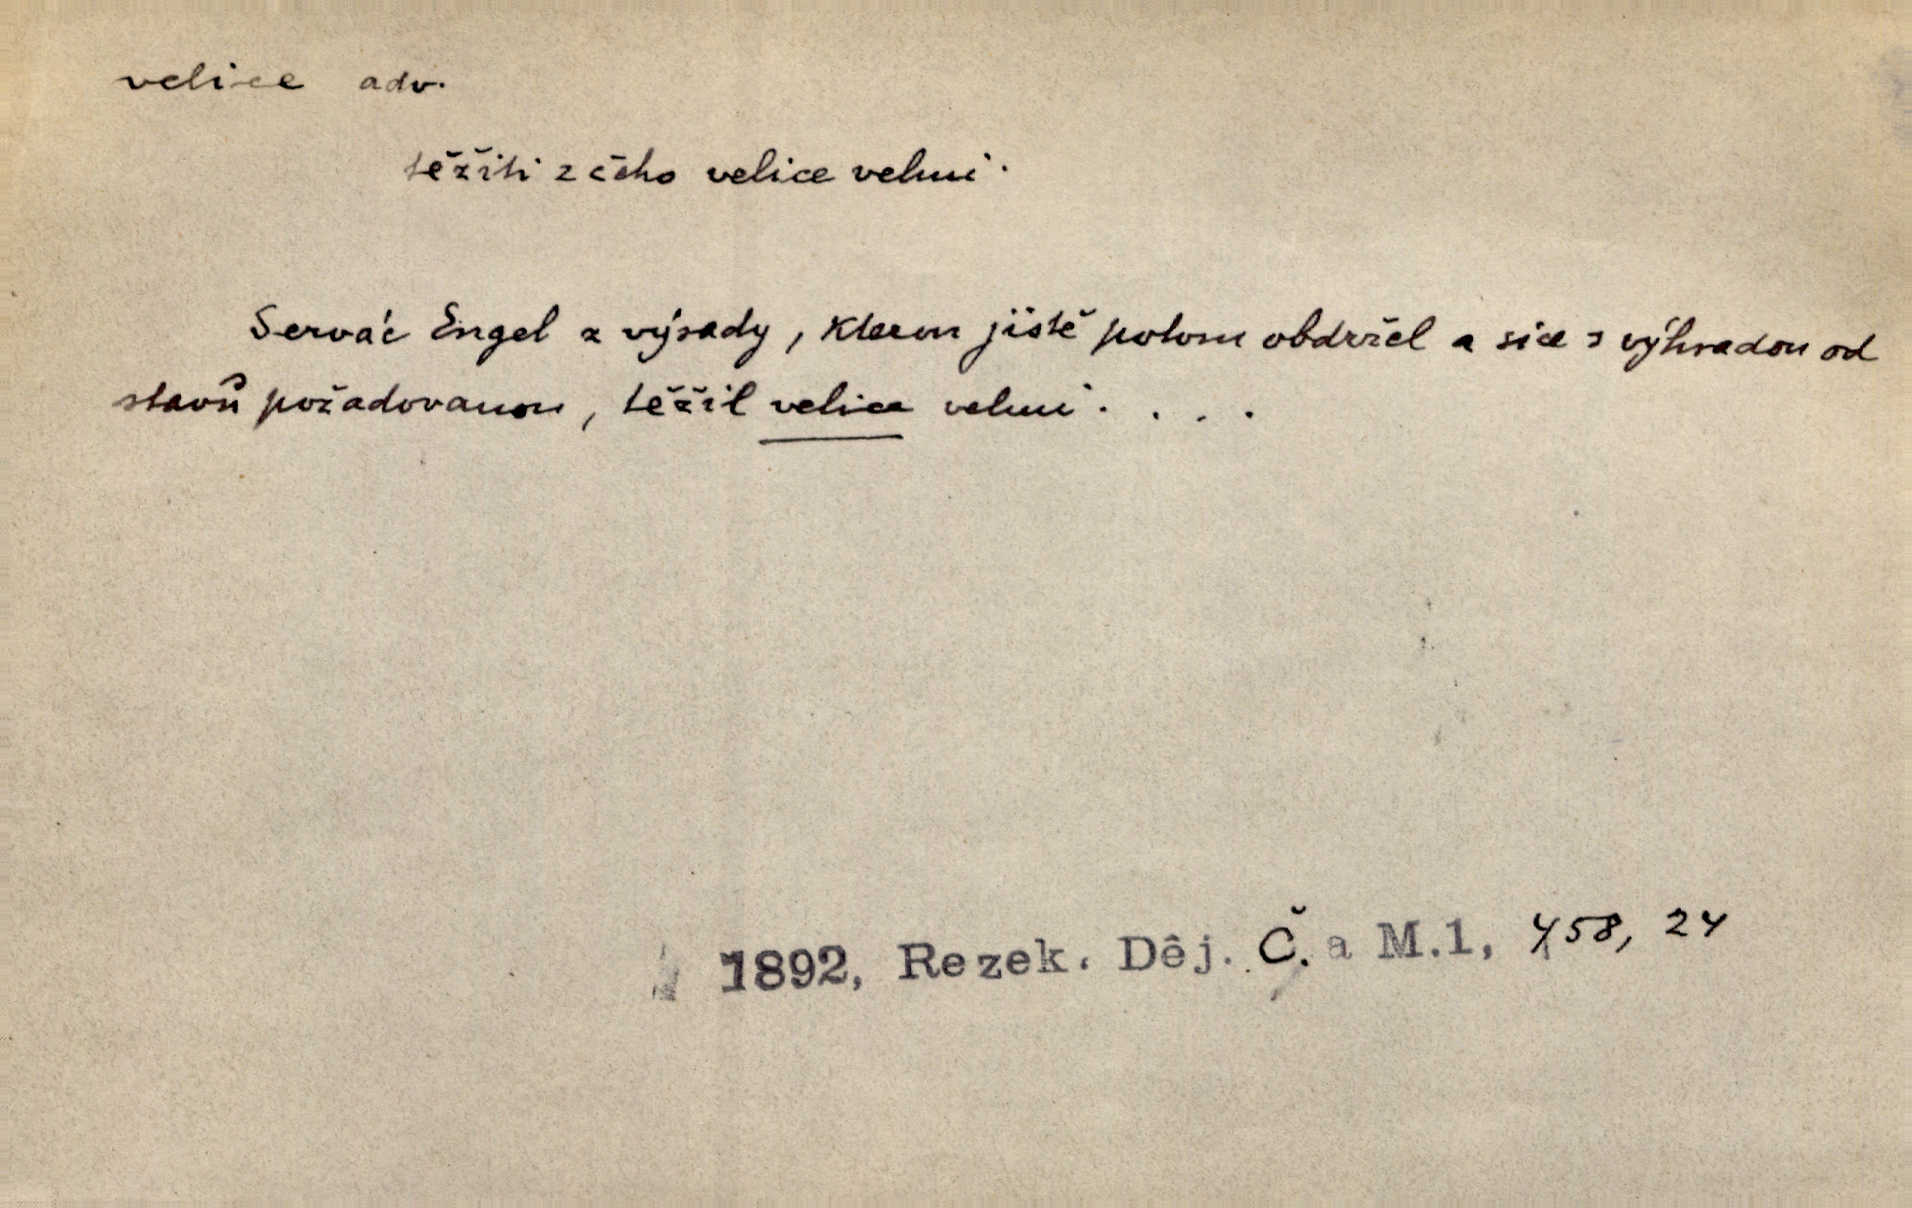 velice adv.
těžiti z čeho velice velmi.
Servác Engel z výsady, kterou jistě potom obdržel a sice s výhradou od
stavů požadovanou, těžil velice velmi. . . .
1892, Rezek. Děj. Č. a M.1, 458, 24